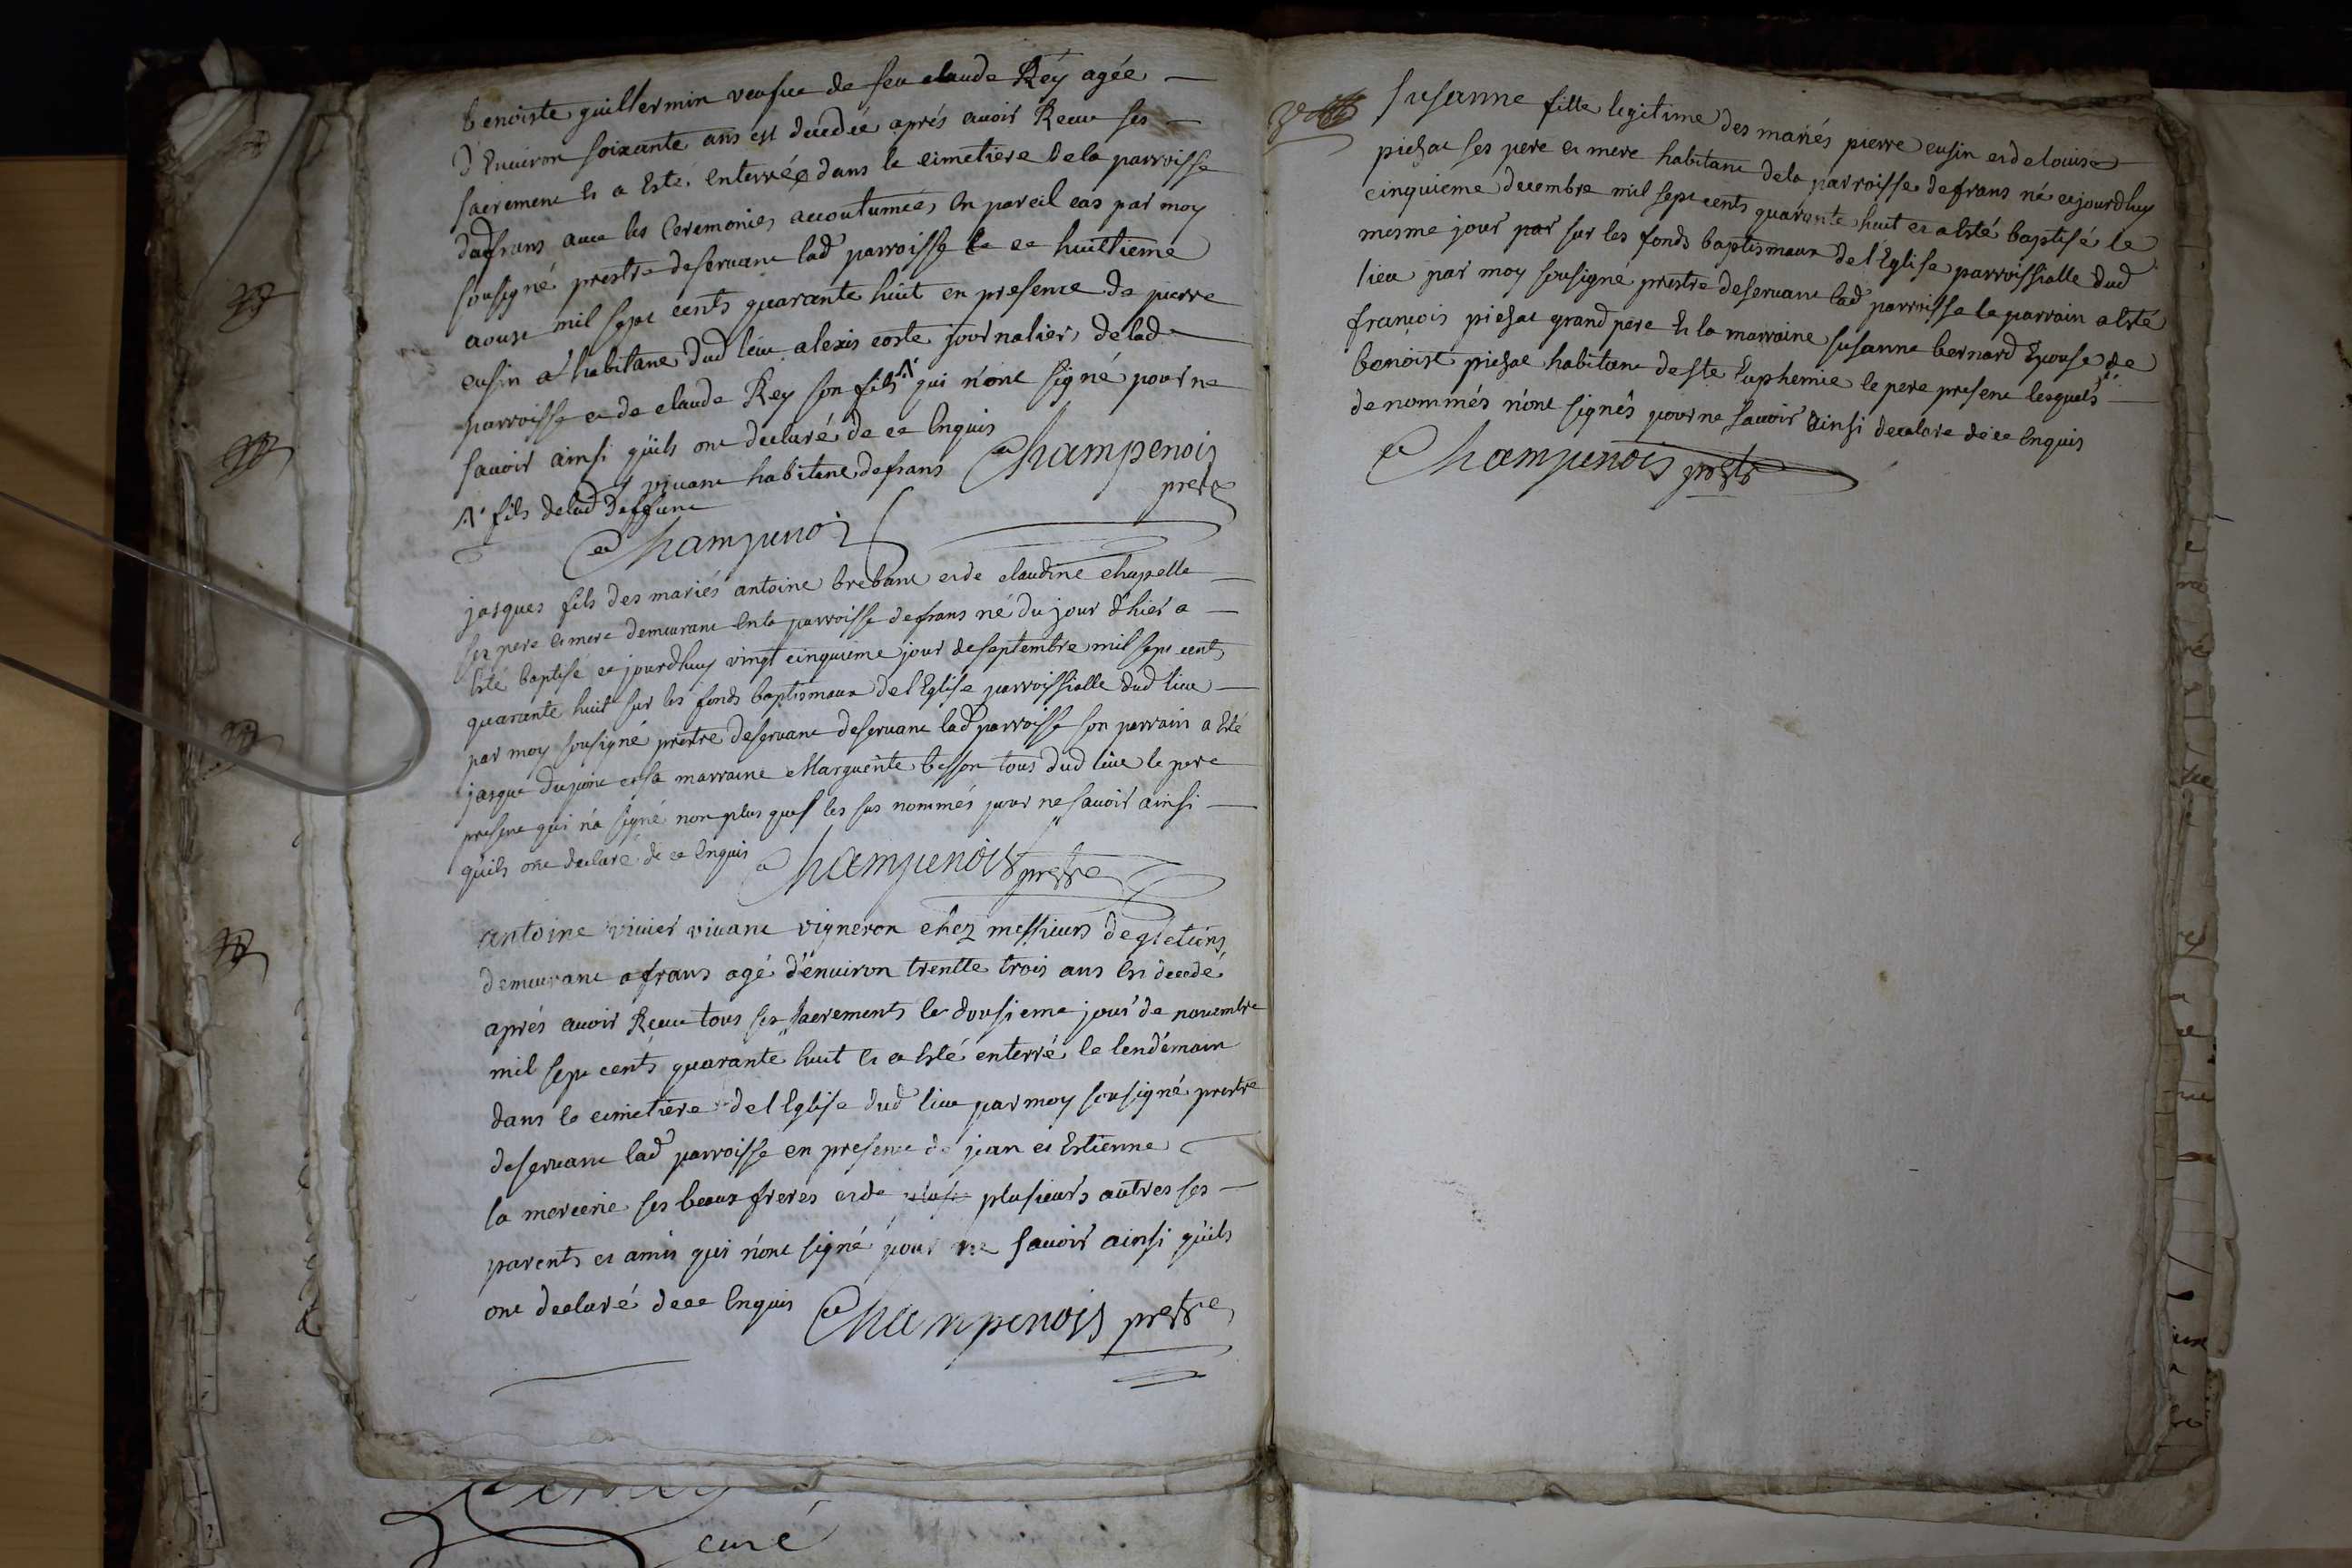 benoiste guillermin veufue de feu claude Rey agée
d'Enuiron soixante ans est decedée aprés auoir Receu ses
sacrement Et a Esté enterrée dans le cimetiere dela parroisse
defrans auec les Ceremonies, accoutumées, En pareil cas par moy
sousigné prestre deseruant lad parroisse le ce huittieme
aoust mil sept cents quarante huit en presence de pierre
cusin a habitant dud lieu alexis coste journalier, delad
parroisse et de claude Rey son fils qui n'ont signé pour ne
sauoir ainsi qu'ils ont declaré de ce Enquis Champenois
prestre
fils delad deffunte viuant habitant defrans
Champenois
jasques fils des mariés antoine breban et de claudine chapelle
ses pere et mere demeurant En la parroisse defrans né du jour d'hier a
Esté baptisé ce jourdhuy vingt cinquieme jour deseptembre mil sept cents
quarante huit sur les fonds baptismaux del Eglise parroissialle dud lieu
par moy sousigné prestre deseruant deseruant lad parroisse son parrain a Esté
jasque dupont et sa marraine Marguerite besson tous dud lieu le pere
present qui n'a signé non plus que les sus nommés pour ne sauoir ainsi
quils ont declaré de ce Enquis Champenois prestre
antoine viuier viuant vigneron chez messieurs degletins
demeurant a frans agé d'enuiron trentte trois ans Est decedé
aprés auoir Receu tous ses sacrements le dousieme jour de nouembre
mil sept cents quarante huit Et a Esté enterré le lendémain
dans le cimetiere del Eglise dud lieu par moy sousigné prestre
deseruant lad parroisse en presence de jean et Estienne
la mercerie ses beaux freres et de plusieurs autres ses
parents et amis qui n'ont signé pour ne sauoir ainsi qu'ils
ont declaré de ce Enquis Champenois prestre
curé
susanne fille legitime des mariés pierre cusin et de louise
pichat ses pere et mere habitant dela parroisse defrans né cejourdhuy
cinquieme decembre mil sept cents quarante huit et a Esté baptisé le
mesme jour par sur les fonds baptismaux de l'Eglise parroissialle dud
lieu par moy sousigné prestre deseruant lad parroisse le parrain a Esté
francois pichat grand pere Et la marraine susanne bernard Epouse de
benoist pichat habitant de ste Euphemie le pere present lesquels
denommés n'ont signés pour ne sauoir ainsi declare de ce Enquis
Champenois prestre